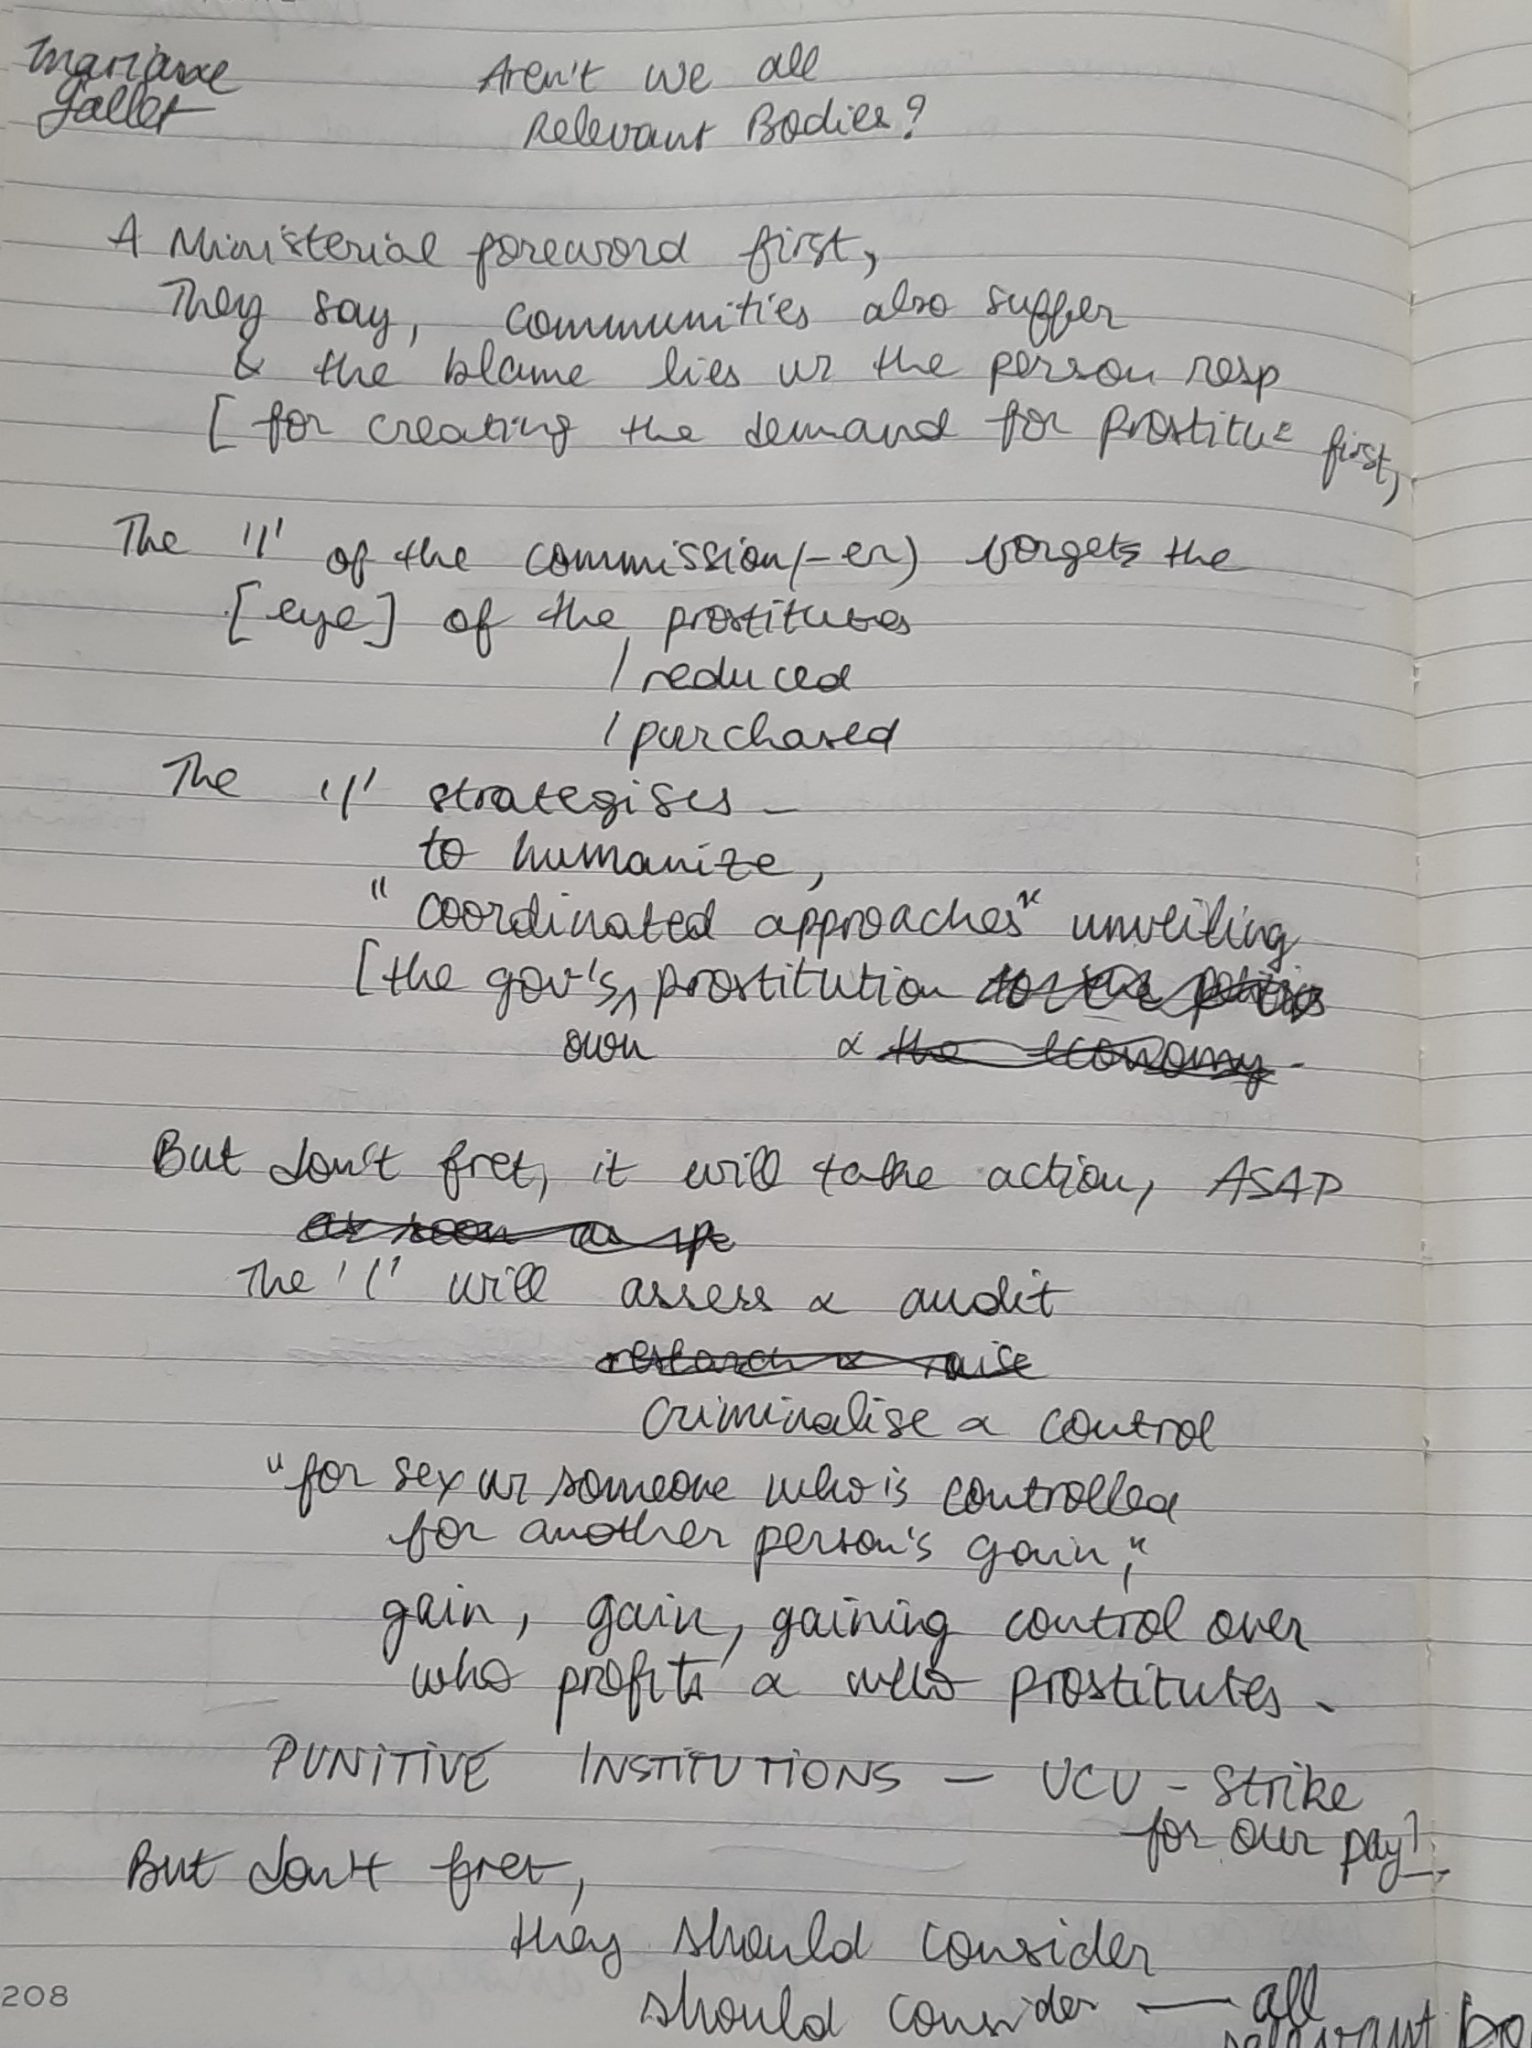 Mariane
Gallet
Aren't we all
Relevant Bodies?
A Ministerial foreword first,
They say, communities also suffer
& the blame lies w the person resp
[ for creating the demand for prostitu= first,
The 'I' of the commission(-er) forgets the
[eye] of the prostitutes
/ reduced
/ purchased
The 'I' strategises –
to humanize,
"coordinated approaches" unveiling
[the gov's, prostitution for the
own & the economy.
But don't fret, it will take action, ASAP
as soon as
The 'I' will assess & audit
research & raise
criminalise & control
"for sex w someone who is controlled
for another person's gain,"
gain, gain, gaining control over
who profits & who prostitutes.
PUNITIVE INSTITUTIONS — UCU – Strike
for our pay],
But don't fret,
they should consider
should consider — all
relevant bo
208